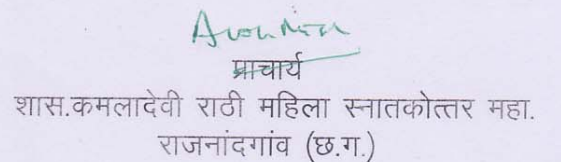 प्राचार्य
शास.कमलादेवी राठी महिला स्नातकोत्तर महा.
राजनांदगांव (छ.ग.)